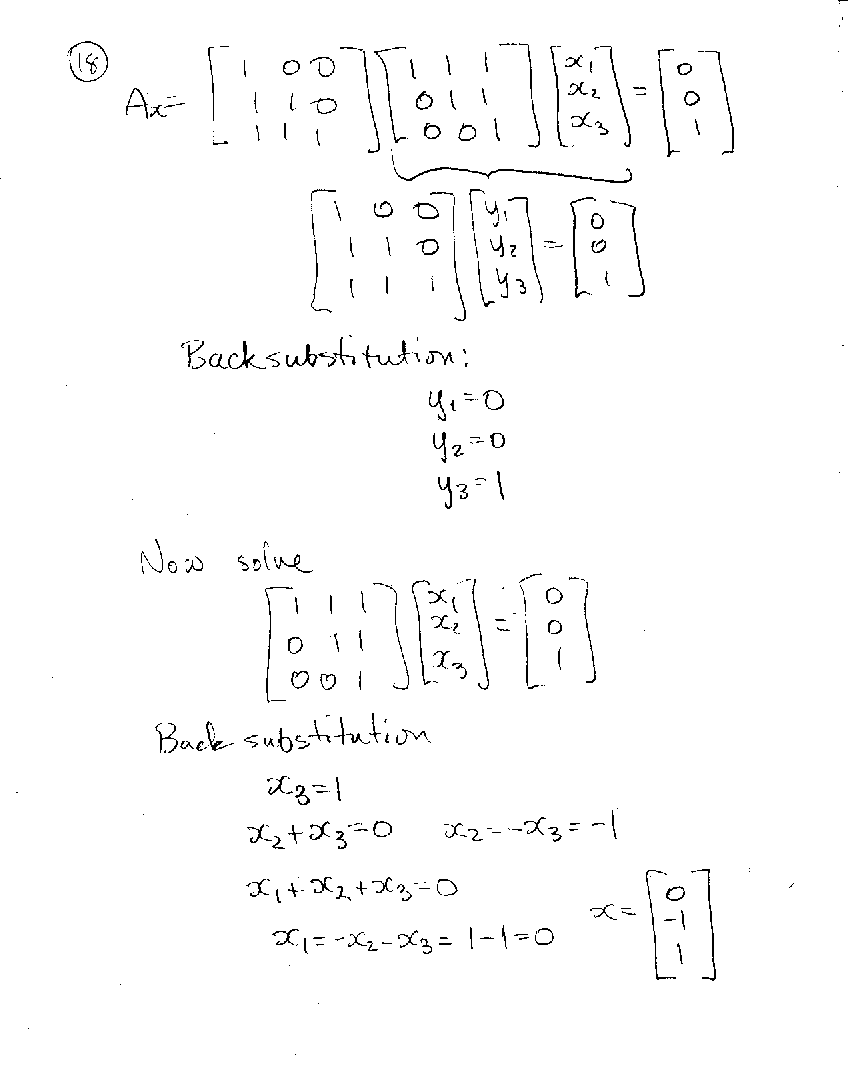 18
Ax = [ 1 0 0 ] [ 1 1 1 ] [ x₁ ] = [ 0 ]
[ 1 1 0 ] [ 0 1 1 ] [ x₂ ] [ 0 ]
[ 1 1 1 ] [ 0 0 1 ] [ x₃ ] [ 1 ]
[ 1 0 0 ] [ y₁ ] = [ 0 ]
[ 1 1 0 ] [ y₂ ] [ 0 ]
[ 1 1 1 ] [ y₃ ] [ 1 ]
Back substitution:
y₁ = 0
y₂ = 0
y₃ = 1
Now solve
[ 1 1 1 ] [ x₁ ] = [ 0 ]
[ 0 1 1 ] [ x₂ ] [ 0 ]
[ 0 0 1 ] [ x₃ ] [ 1 ]
Back substitution
x₃ = 1
x₂ + x₃ = 0 x₂ = -x₃ = -1
x₁ + x₂ + x₃ = 0
x₁ = -x₂ - x₃ = 1 - 1 = 0 x = [ 0 ]
[ -1 ]
[ 1 ]